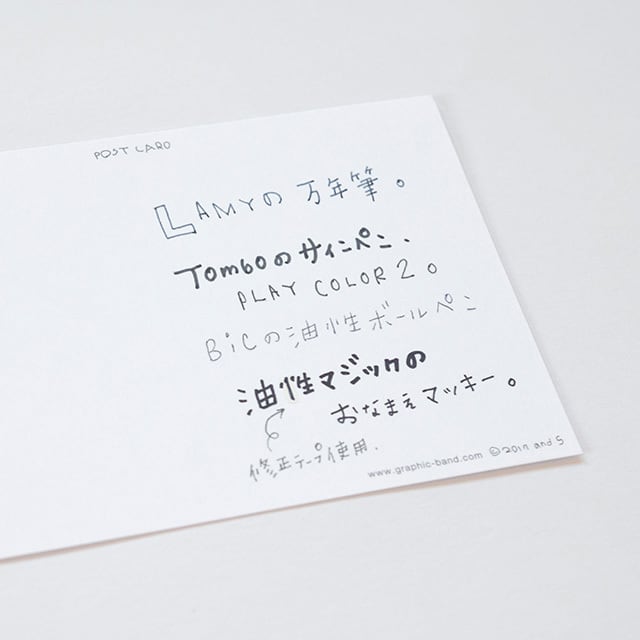 POST CARD
LAMYの 万年筆。
TOMBOのサインペン、
PLAY COLOR 2。
BiCの油性ボールペン
油性マジックの
おなまえマッキー。
修正テープ使用.
www.graphic-band.com © 201n and S